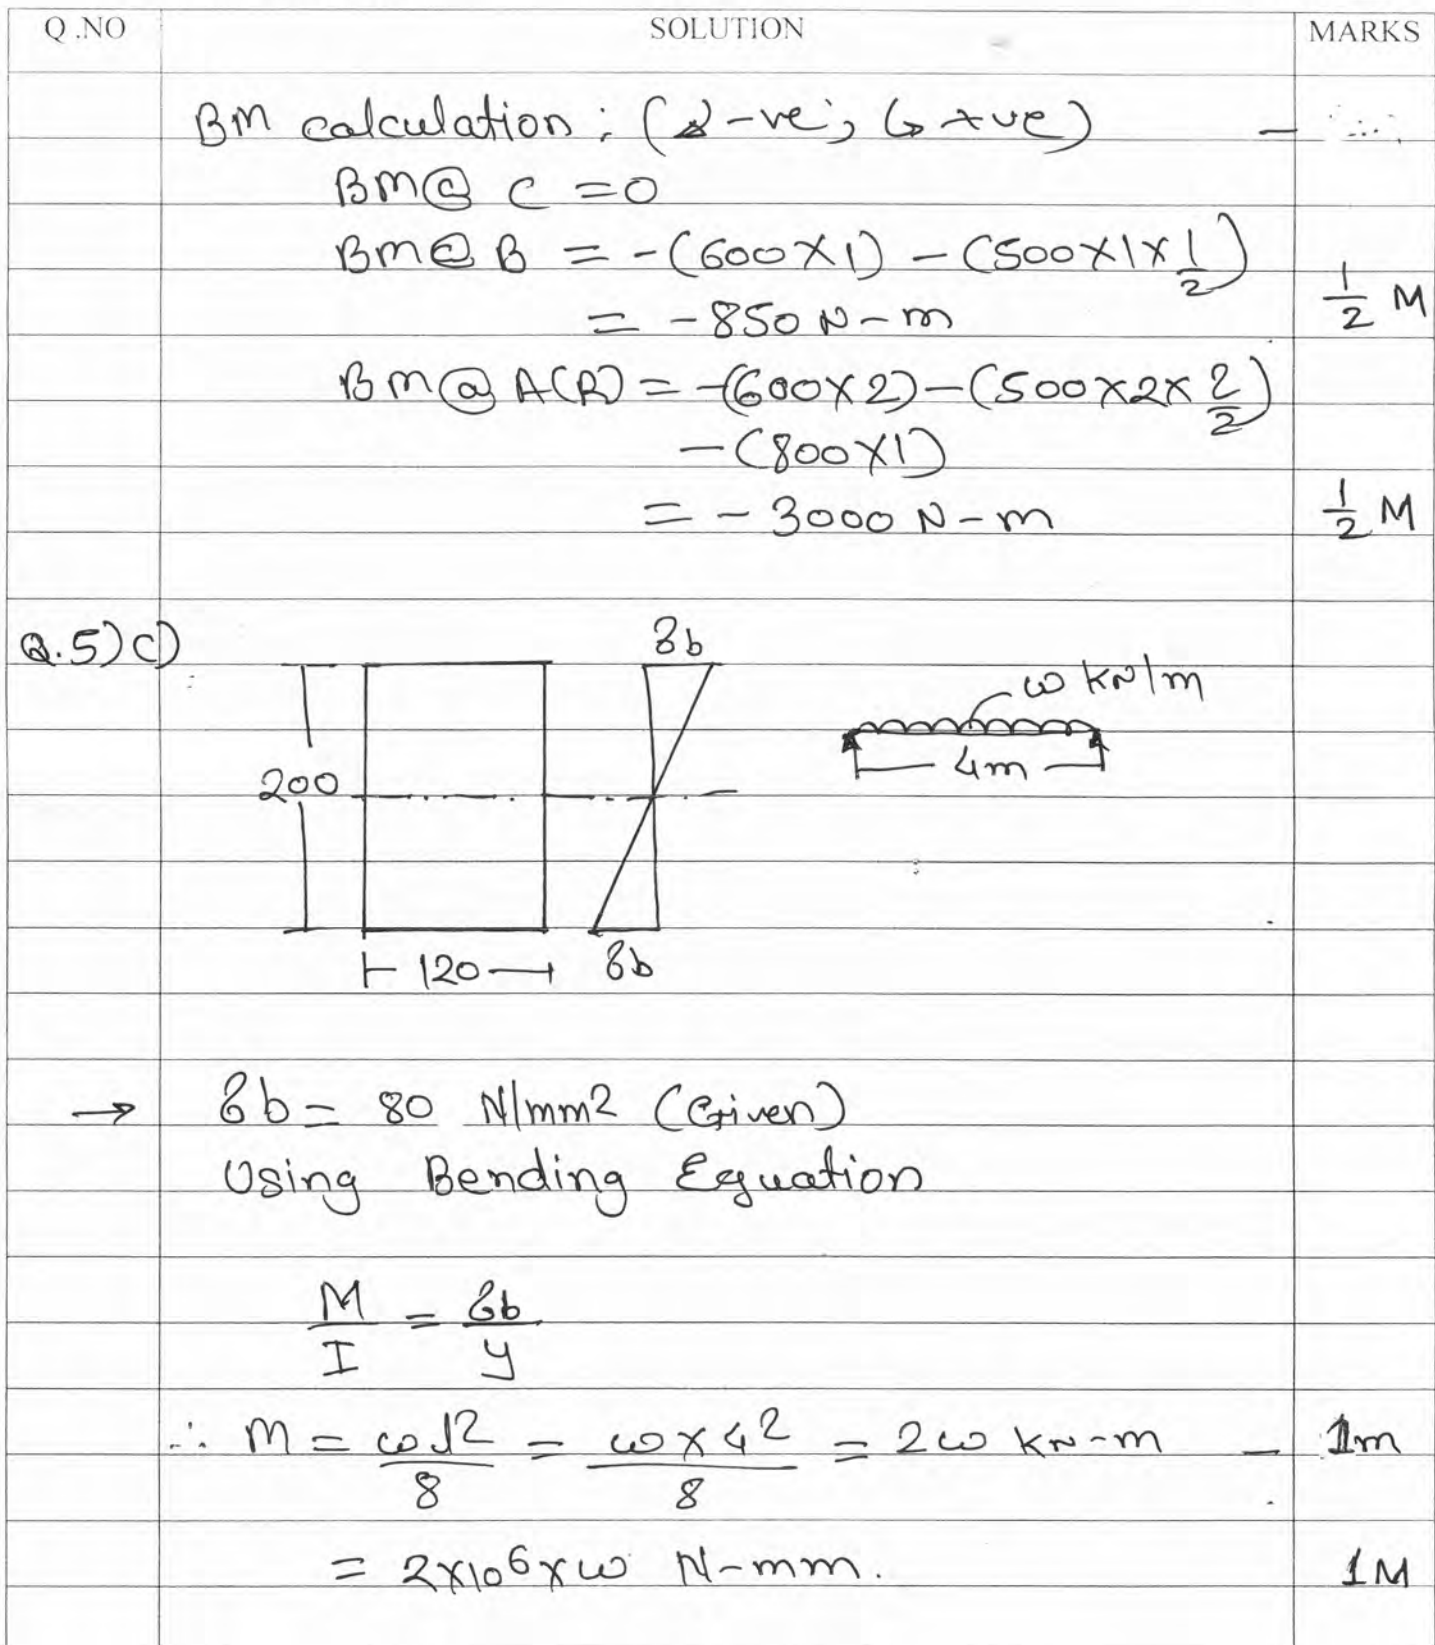 Q.NO SOLUTION MARKS
BM calculation: (↻ -ve; ↺ +ve) -
BM@ C = 0
BM@ B = -(600×1) - (500×1×1/2)
= -850 N-m 1/2 M
BM@ A(R) = -(600×2) - (500×2×2/2)
-(800×1)
= -3000 N-m 1/2 M
Q.5)C)
σb
ω kN/m
4m
200
120
σb
→ σb = 80 N/mm2 (Given)
Using Bending Equation
M/I = σb/y
∴ M = ωl²/8 = ω×4²/8 = 2ω kN-m - 1m
= 2×10⁶×ω N-mm. 1M